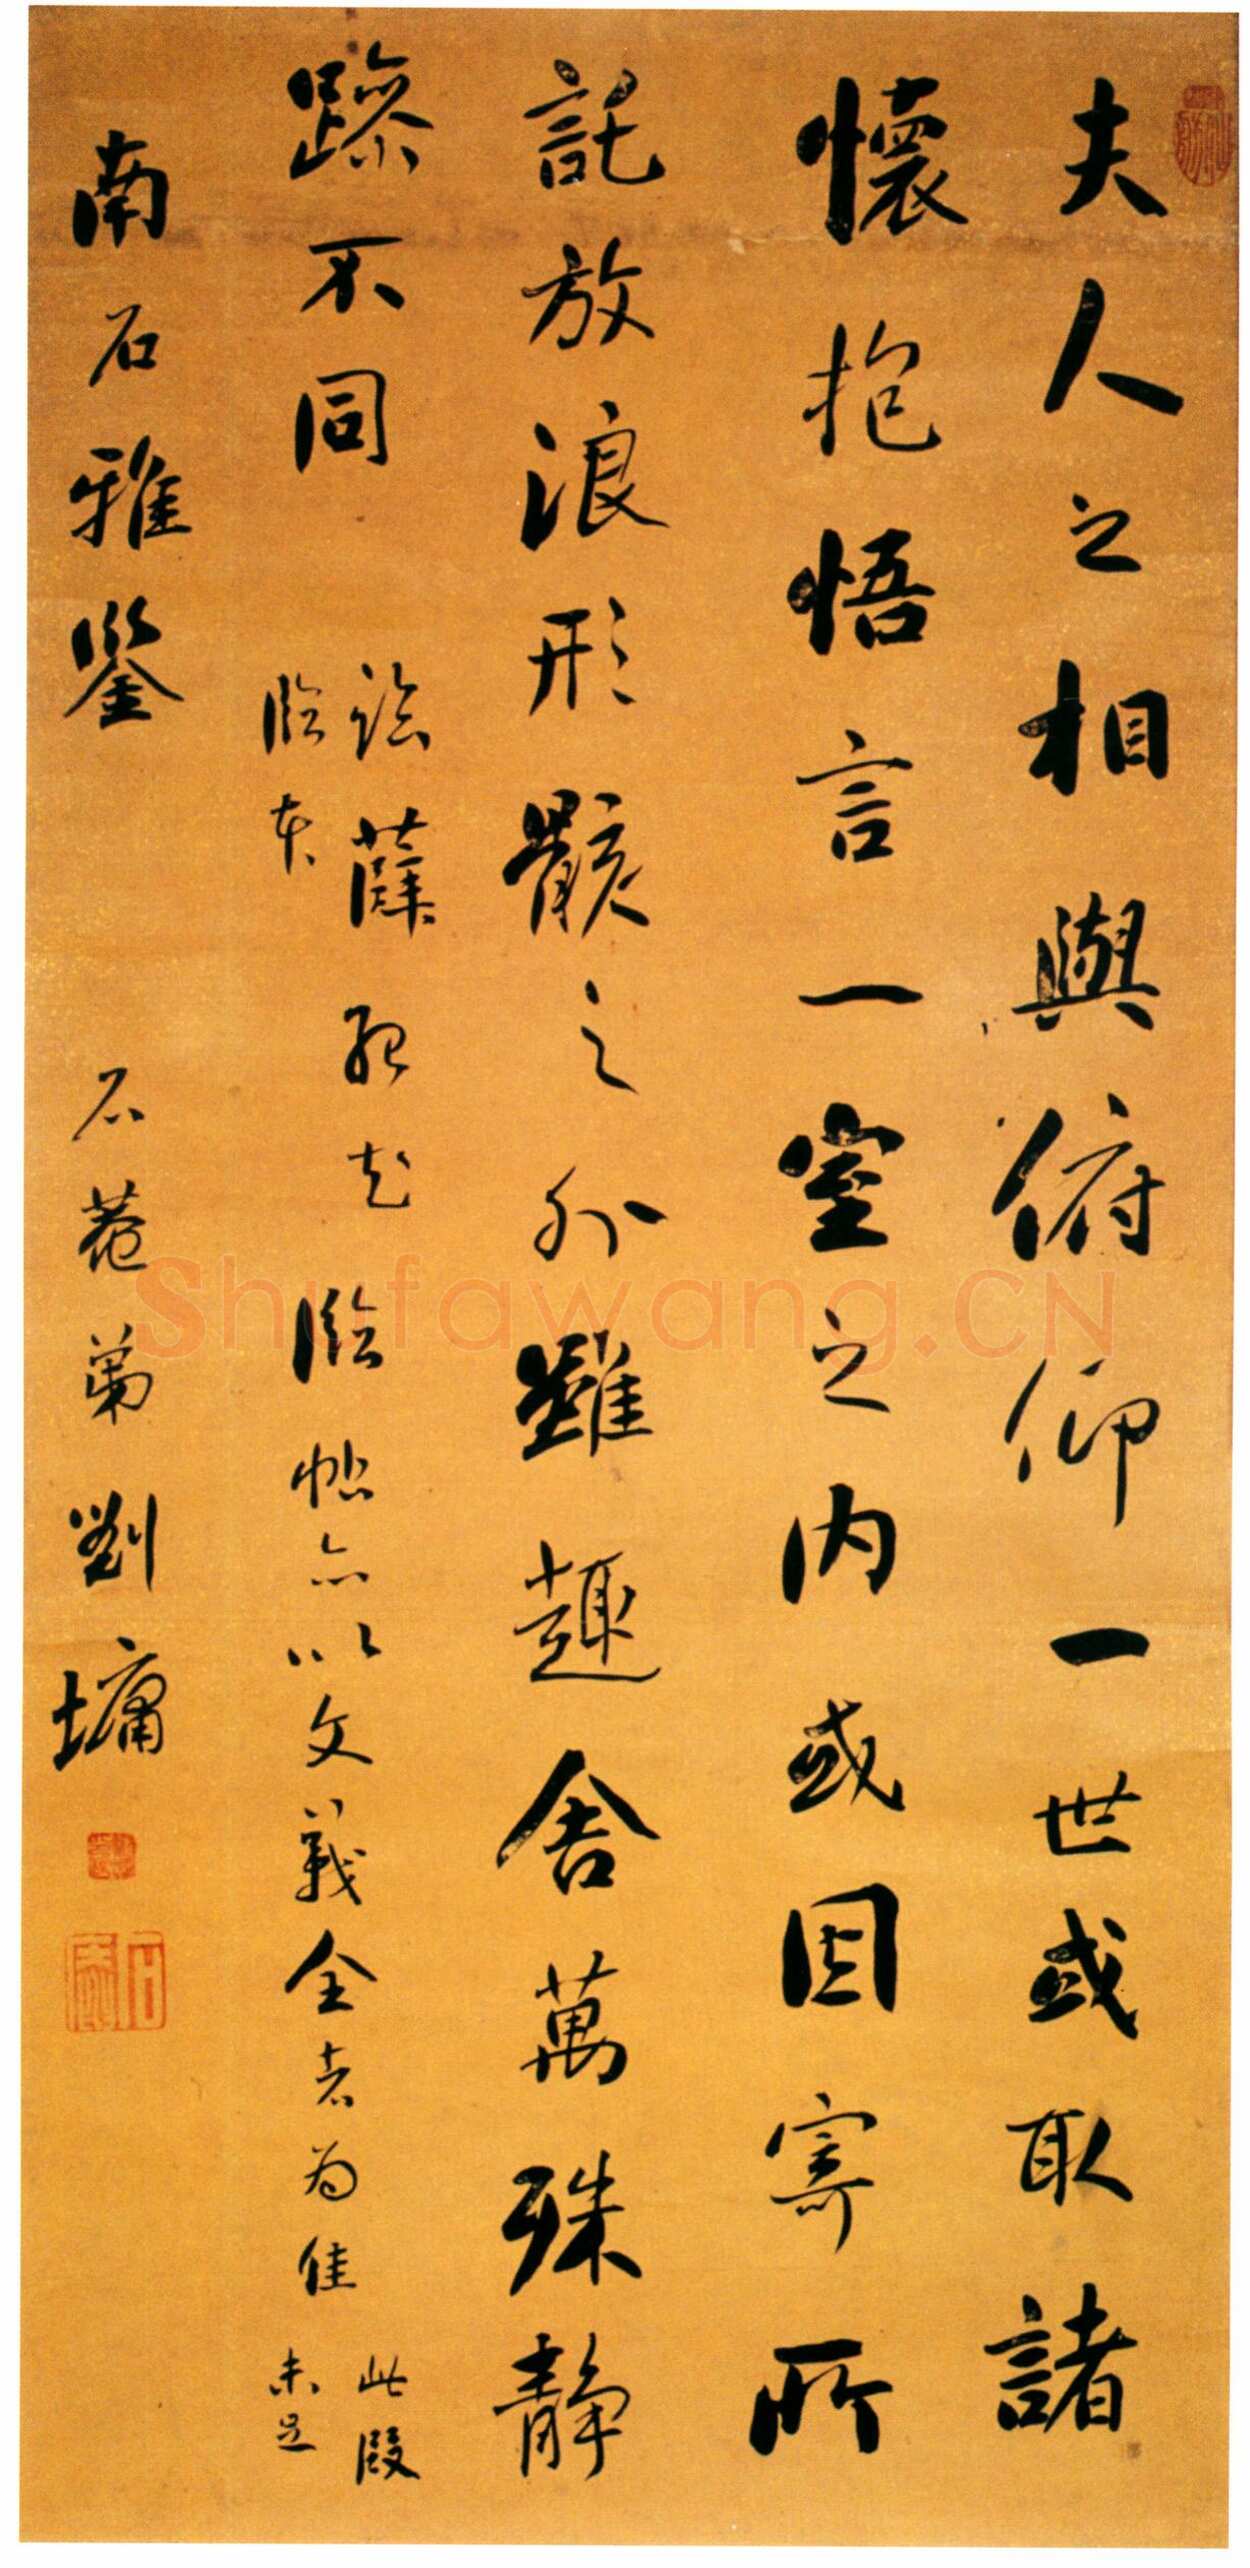 夫人之相與俯仰一世或取諸
懷抱悟言一室之内或因寄所
託放浪形骸之外雖趣舍萬殊静
躁不同
臨本
臨帖亦以文義全者為佳
此段
未足
南石雅鑒 石菴弟劉墉
Shufawang.CN